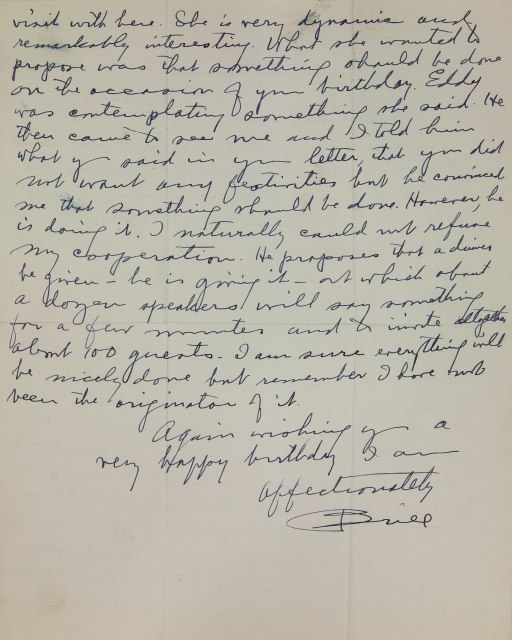 visit with here. She is very dynamic and
remarkably interesting. What she wanted to
propose was that something should be done
on the occasion of your birthday. Eddy
was contemplating something she said. He
then came to see me and I told him
what you said in your letter, that you did
not want any festivities but he convinced
me that something should be done. However, he
is doing it. I naturally could not refuse
my cooperation. He proposes that a dinner
be given – he is giving it – at which about
a dozen speakers will say something
for a few minutes and to invite altogether
about 100 guests. I am sure everything will
be nicely done but remember I have not
been the originator of it.
Again wishing you a
very happy birthday I am
affectionately
Brill